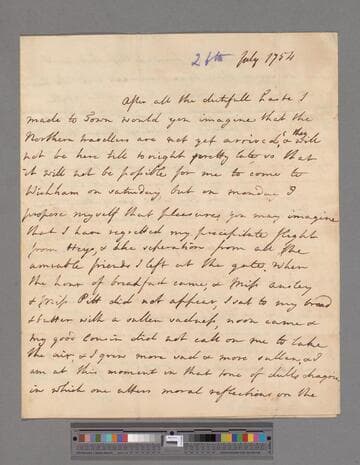 26th July 1754
After all the dutifull haste I
made to Town would you imagine that the
Northern travellers are not yet arrived, & they will
not be here till to night pretty late, so that
it will not be possible for me to come to
Wickham on saturday, but on monday I
propose myself that pleasure, you may imagine
that I have regretted my precipitate flight
from Heys, & the seperation from all the
amiable friends I left at the gate. When
the hour of breakfast came, & Miss Ansley
& Miss Pitt did not appear, I sat to my bread
& butter with a sullen sadness, noon came &
my good Cousin did not call on me to take
the air, & I grew more sad & more sullen, & I
am at this moment in that tone of dull chagrin
in which one utters moral reflections on the